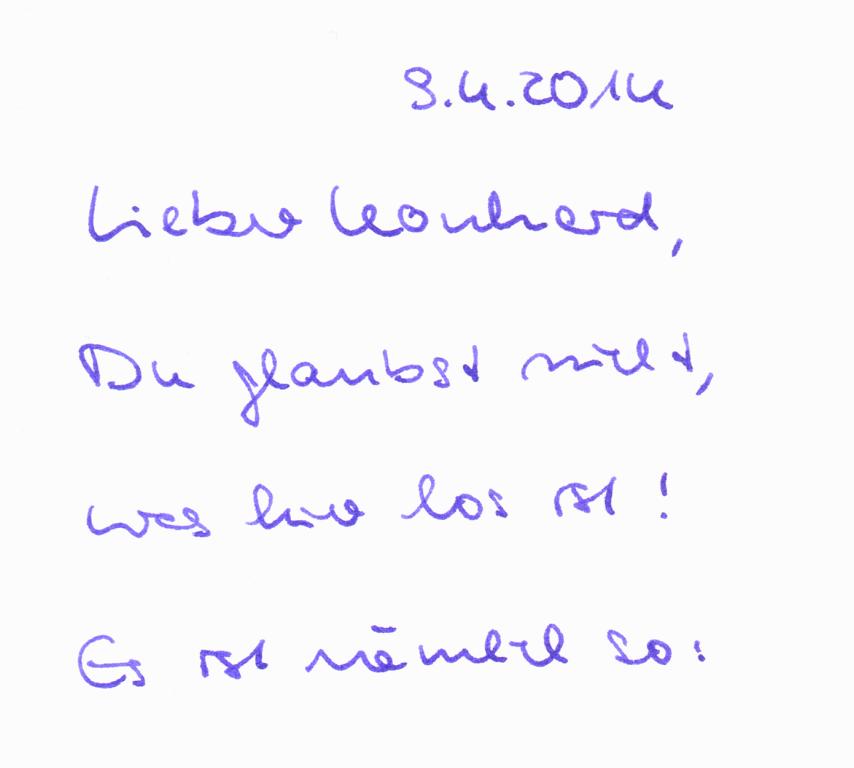 9.4.2014
Lieber Leonhard,
Du glaubst nicht,
was hier los ist!
Es ist nämlich so: